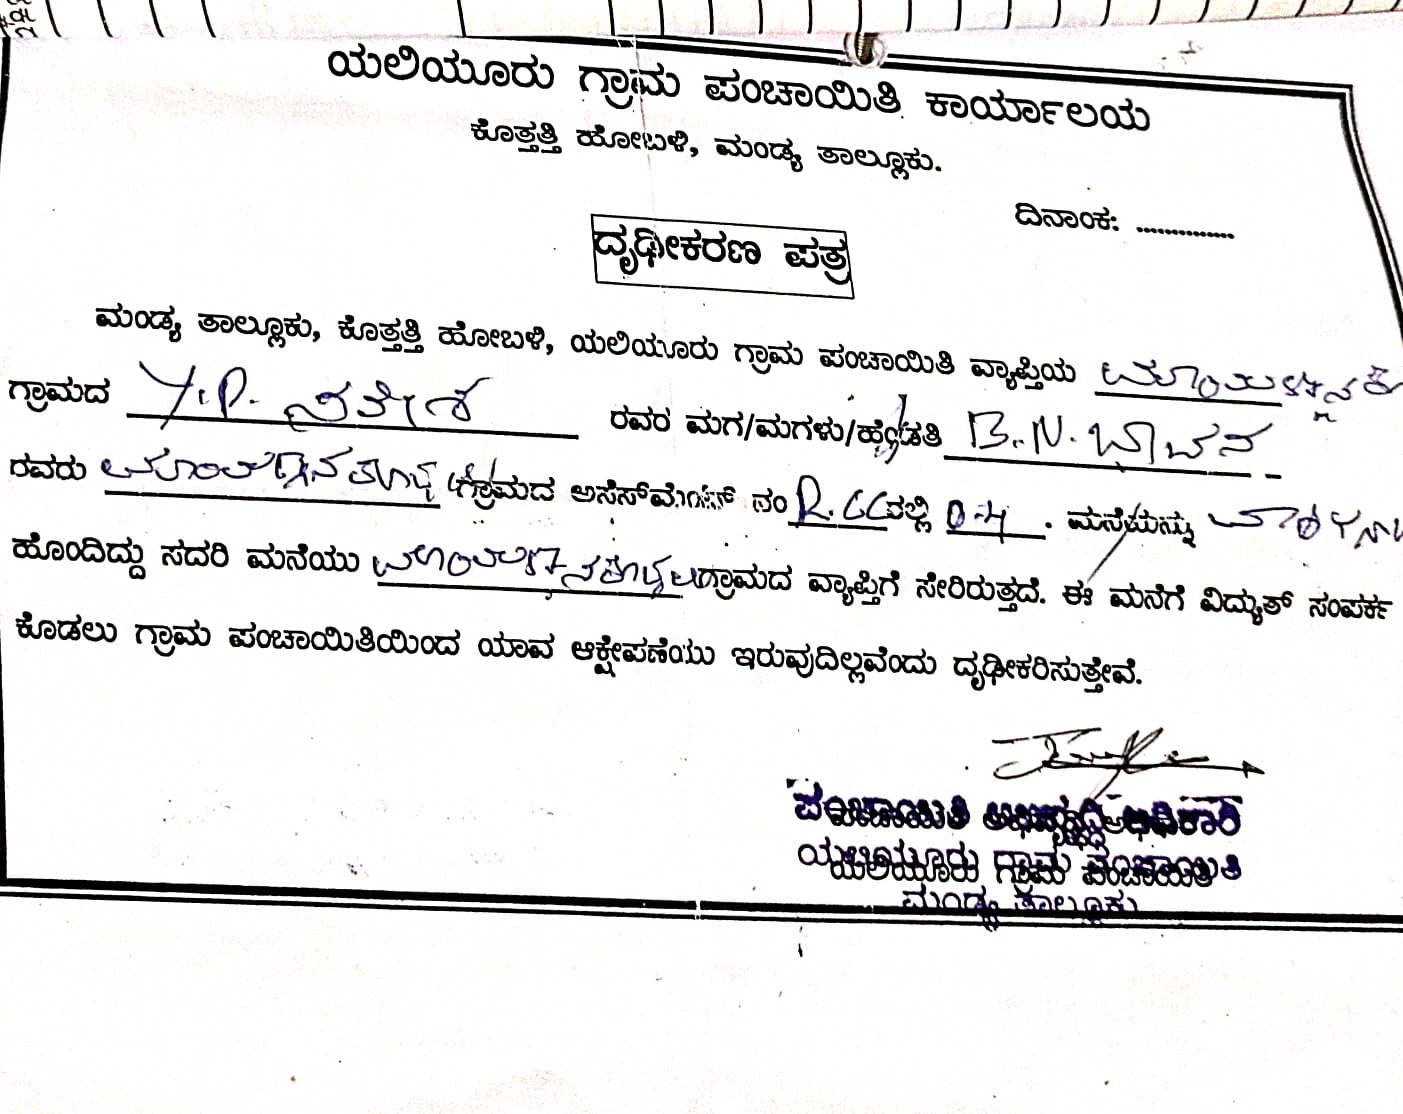 ಯಲಿಯೂರು ಗ್ರಾಮ ಪಂಚಾಯಿತಿ ಕಾರ್ಯಾಲಯ
ಕೊತ್ತತ್ತಿ ಹೋಬಳಿ, ಮಂಡ್ಯ ತಾಲ್ಲೂಕು.
ದಿನಾಂಕ: ...............
ದೃಢೀಕರಣ ಪತ್ರ
ಮಂಡ್ಯ ತಾಲ್ಲೂಕು, ಕೊತ್ತತ್ತಿ ಹೋಬಳಿ, ಯಲಿಯೂರು ಗ್ರಾಮ ಪಂಚಾಯಿತಿ ವ್ಯಾಪ್ತಿಯ
ಗ್ರಾಮದ Y.P. ರವರ ಮಗ/ಮಗಳು/ಹೆಂಡತಿ B.N. ಭಾವನ
ರವರು ಗ್ರಾಮದ ಅಸೆಸ್‌ಮೆಂಟ್ ನಂ R.CC ರಲ್ಲಿ 0-4 . ಮನೆಯನ್ನು
ಹೊಂದಿದ್ದು ಸದರಿ ಮನೆಯು ಗ್ರಾಮದ ವ್ಯಾಪ್ತಿಗೆ ಸೇರಿರುತ್ತದೆ. ಈ ಮನೆಗೆ ವಿದ್ಯುತ್ ಸಂಪರ್ಕ
ಕೊಡಲು ಗ್ರಾಮ ಪಂಚಾಯಿತಿಯಿಂದ ಯಾವ ಆಕ್ಷೇಪಣೆಯು ಇರುವುದಿಲ್ಲವೆಂದು ದೃಢೀಕರಿಸುತ್ತೇವೆ.
ಪಂಚಾಯಿತಿ ಅಭಿವೃದ್ಧಿ ಅಧಿಕಾರಿ
ಯಲಿಯೂರು ಗ್ರಾಮ ಪಂಚಾಯಿತಿ
ಮಂಡ್ಯ ತಾಲ್ಲೂಕು